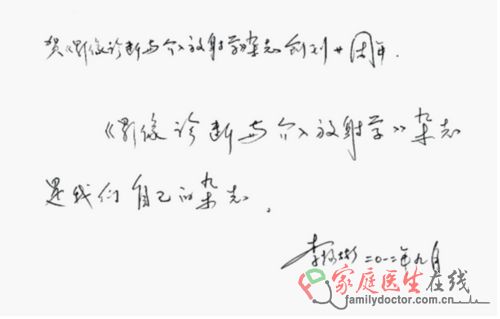 贺《影像诊断与介入放射学》杂志创刊廿周年.
《影像诊断与介入放射学》杂志
是我们自己的杂志。
二〇一二年九月
家庭医生在线
familydoctor.com.cn